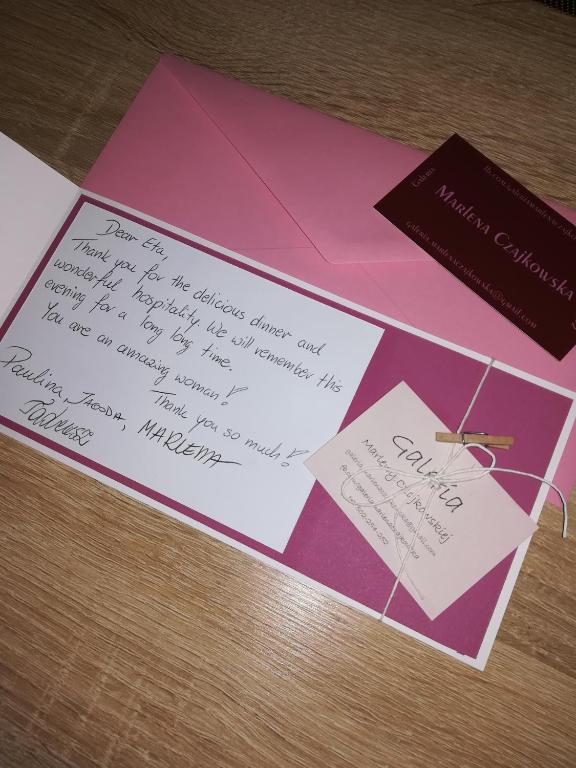 Dear Eta,
Thank you for the delicious dinner and
wonderful hospitality. We will remember this
evening for a long long time.
You are an amazing woman!
Thank you so much!
Paulina, JAGODA, MARLENA
Tadeusz
Galeria
fb.com/GaleriaMarlenyCzajkowskiej
Marlena Czajkowska
Galeria.marlenyczajkowska@gmail.com
Galeria
Marleny Czajkowskiej